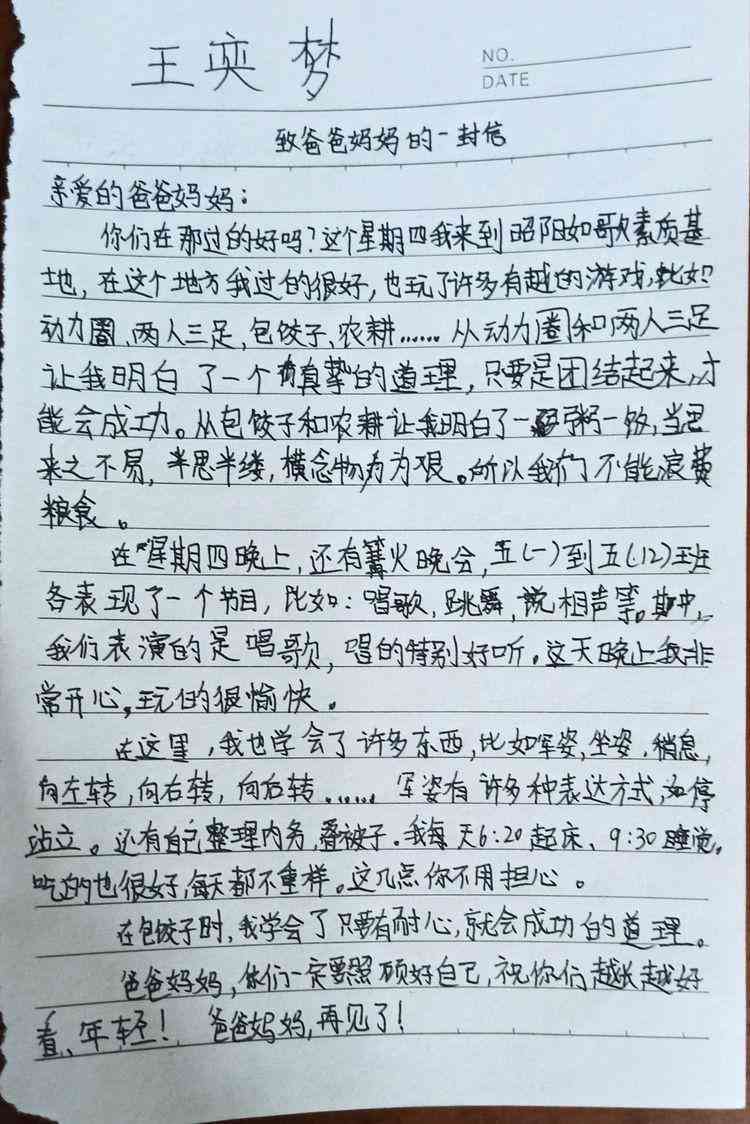 王奕梦
NO.
DATE
致爸爸妈妈的一封信
亲爱的爸爸妈妈：
你们在那过的好吗？这个星期四我来到昭阳如歌素质基
地，在这个地方我过的很好，也玩了许多有趣的游戏，比如
动力圈，两人三足，包饺子、农耕……从动力圈和两人三足
让我明白了一个真挚的道理，只要是团结起来，才
能会成功。从包饺子和农耕让我明白了一粥一饭，当思
来之不易，半思半缕，横念物为为艰。所以我们不能浪费
粮食。
在星期四晚上，还有篝火晚会，五(一)到五(12)班
各表现了一个节目，比如：唱歌，跳舞，说相声等。其中，
我们表演的是唱歌，唱的特别好听。这天晚上我非
常开心，玩的很愉快。
在这里，我也学会了许多东西，比如军姿，坐姿，稍息，
向左转，向右转，向后转……军姿有许多种表达方式，如停
站立。还有自己整理内务，叠被子。我每天6:20起床、9:30睡觉。
吃的也很好，每天都不重样。这几点你不用担心。
在包饺子时，我学会了只要有耐心，就会成功的道理。
爸爸妈妈，你们一定要照顾好自己，祝你们越长越好
看、年轻！爸爸妈妈，再见了！